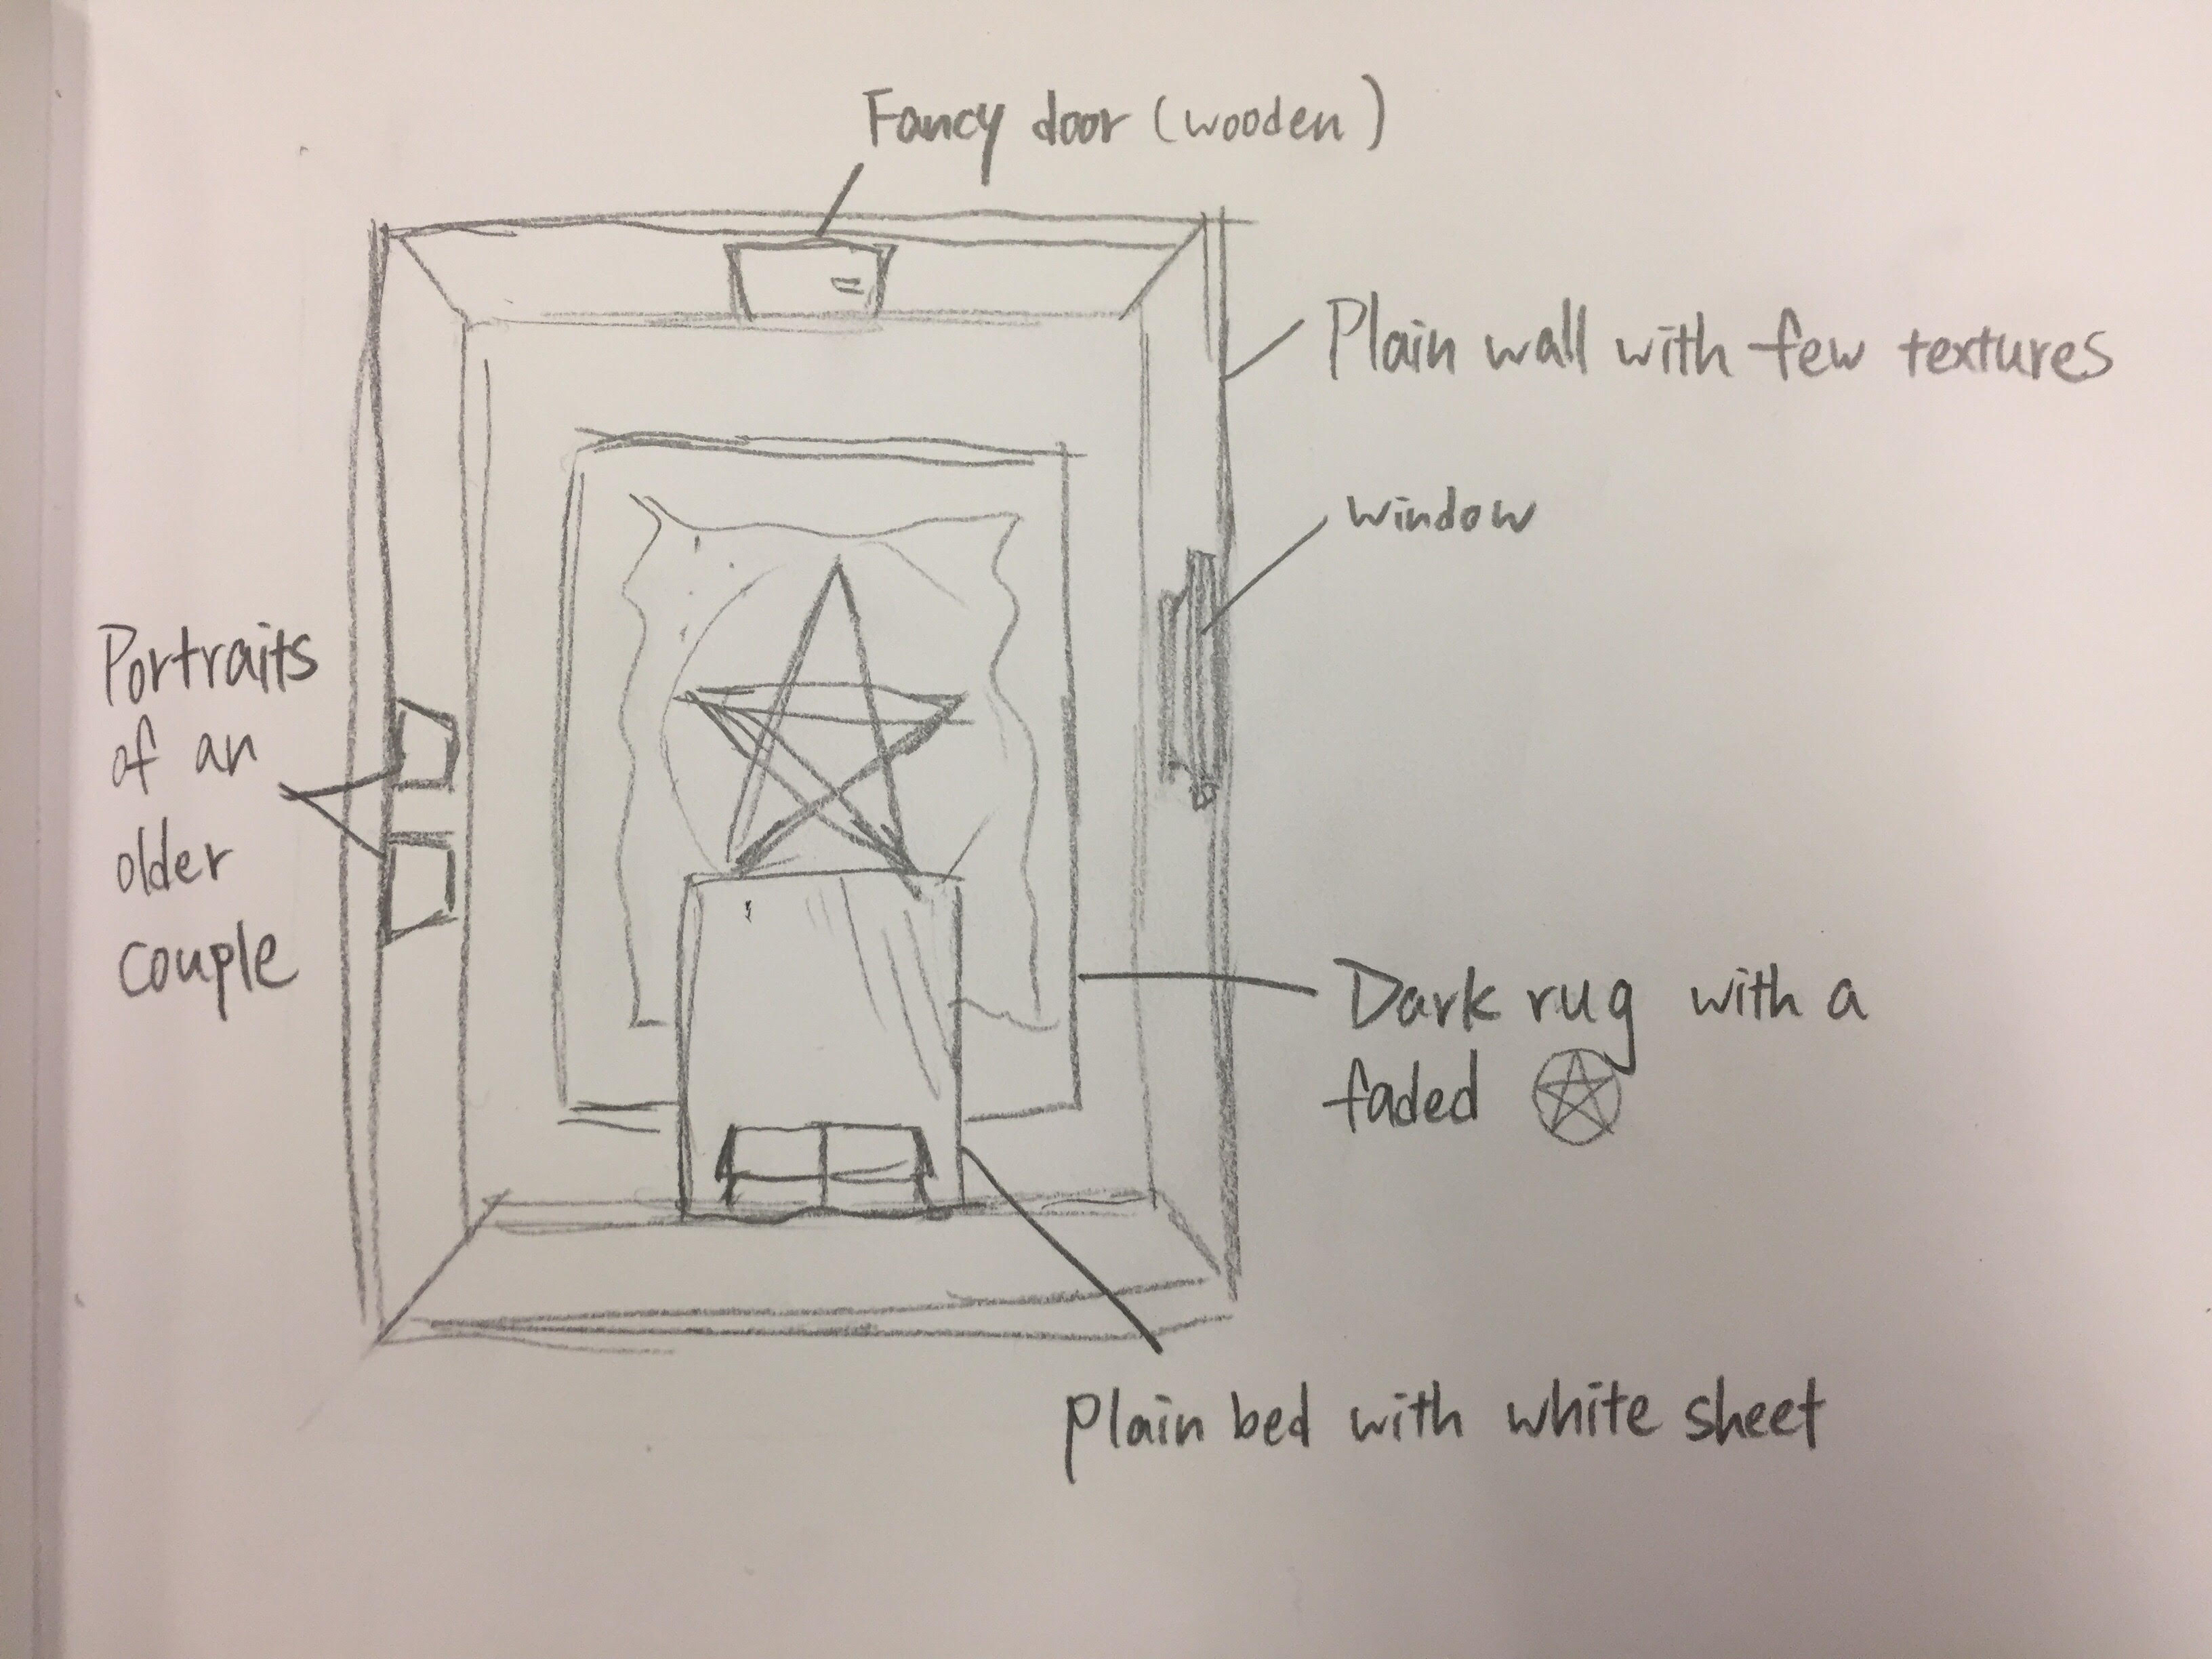 Fancy door (wooden)
Plain wall with few textures
window
Portraits
of an
older
couple
Dark rug with a
faded
plain bed with white sheet